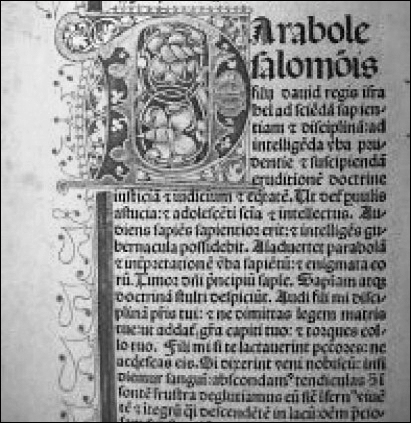 Parabole
salomōis
filij dauid regis isra
hel ad sciēdā sapien⸗
tiam ⁊ disciplinā: ad
intelligēda v̄ba pru⸗
dentie ⁊ suscipiendā
eruditionē doctrine
iusticiā ⁊ iudicium ⁊ eq̄tatē. Ut det᷑ puulis
astucia: ⁊ adolescēti sciā ⁊ intellectus. Au⸗
diens sapiēs sapientior erit: ⁊ intelligēs gu⸗
bernacula possidebit. Aīaduertet parabolā
⁊ inṫpretationē v̄ba sapiētū: ⁊ enigmata eo
rū. Timor dn̄i p̄ncipiū sapīe. Sapīam atq̄
doctrinā stulti despiciūt. Audi fili mi disci⸗
plinā pr̄is tui: ⁊ ne dimittas legem matris
tue: ut addat᷑ gr̄a capiti tuo: ⁊ torques col⸗
lo tuo. Fili mi si te lactauerint pctōres: ne
acq̇escas eis. Si dixerint veni nobiscū: insi
diemur sanguī: abscondamꝰ tendiculas
sontē frustra deglutiamus eū sic̄ īfernꝰ viuē
tē ⁊ itegrū q̄i descendētē in lacū: oēm p̄cio